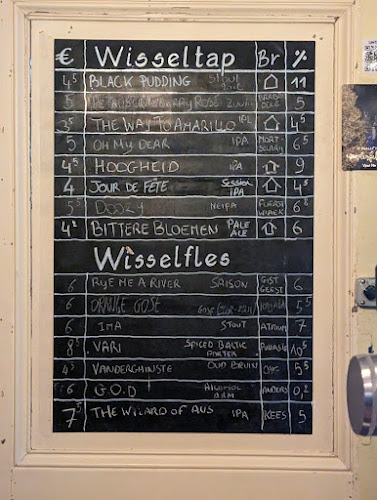 € Wisseltap Br %
4⁵ BLACK PUDDING STOUT 11
5 ROSÉ ZUUR 5
3⁵ THE WAY TO AMARILLO IPL 4⁵
5 OH MY DEAR IPA 6⁵
4⁵ HOOGHEID IPA 9
4 JOUR DE FÊTE SESSION IPA 4⁵
5⁵ DOOZY NEIPA 6⁸
4² BITTERE BLOEMEN PALE ALE 6
Wisselfles
6 RYE ME A RIVER SAISON GIST GEEST 6
6 ORANGE GOSE 5⁵
6 IMA STOUT ATRIUM 7
8⁵ VARI SPICED BALTIC PORTER 10⁵
4⁵ VANDERGHINSTE OUD BRUIN 5⁵
6 G.O.D ALCOHOL ARM 0,²
7⁵ THE WIZARD OF AUS IPA KEES 5